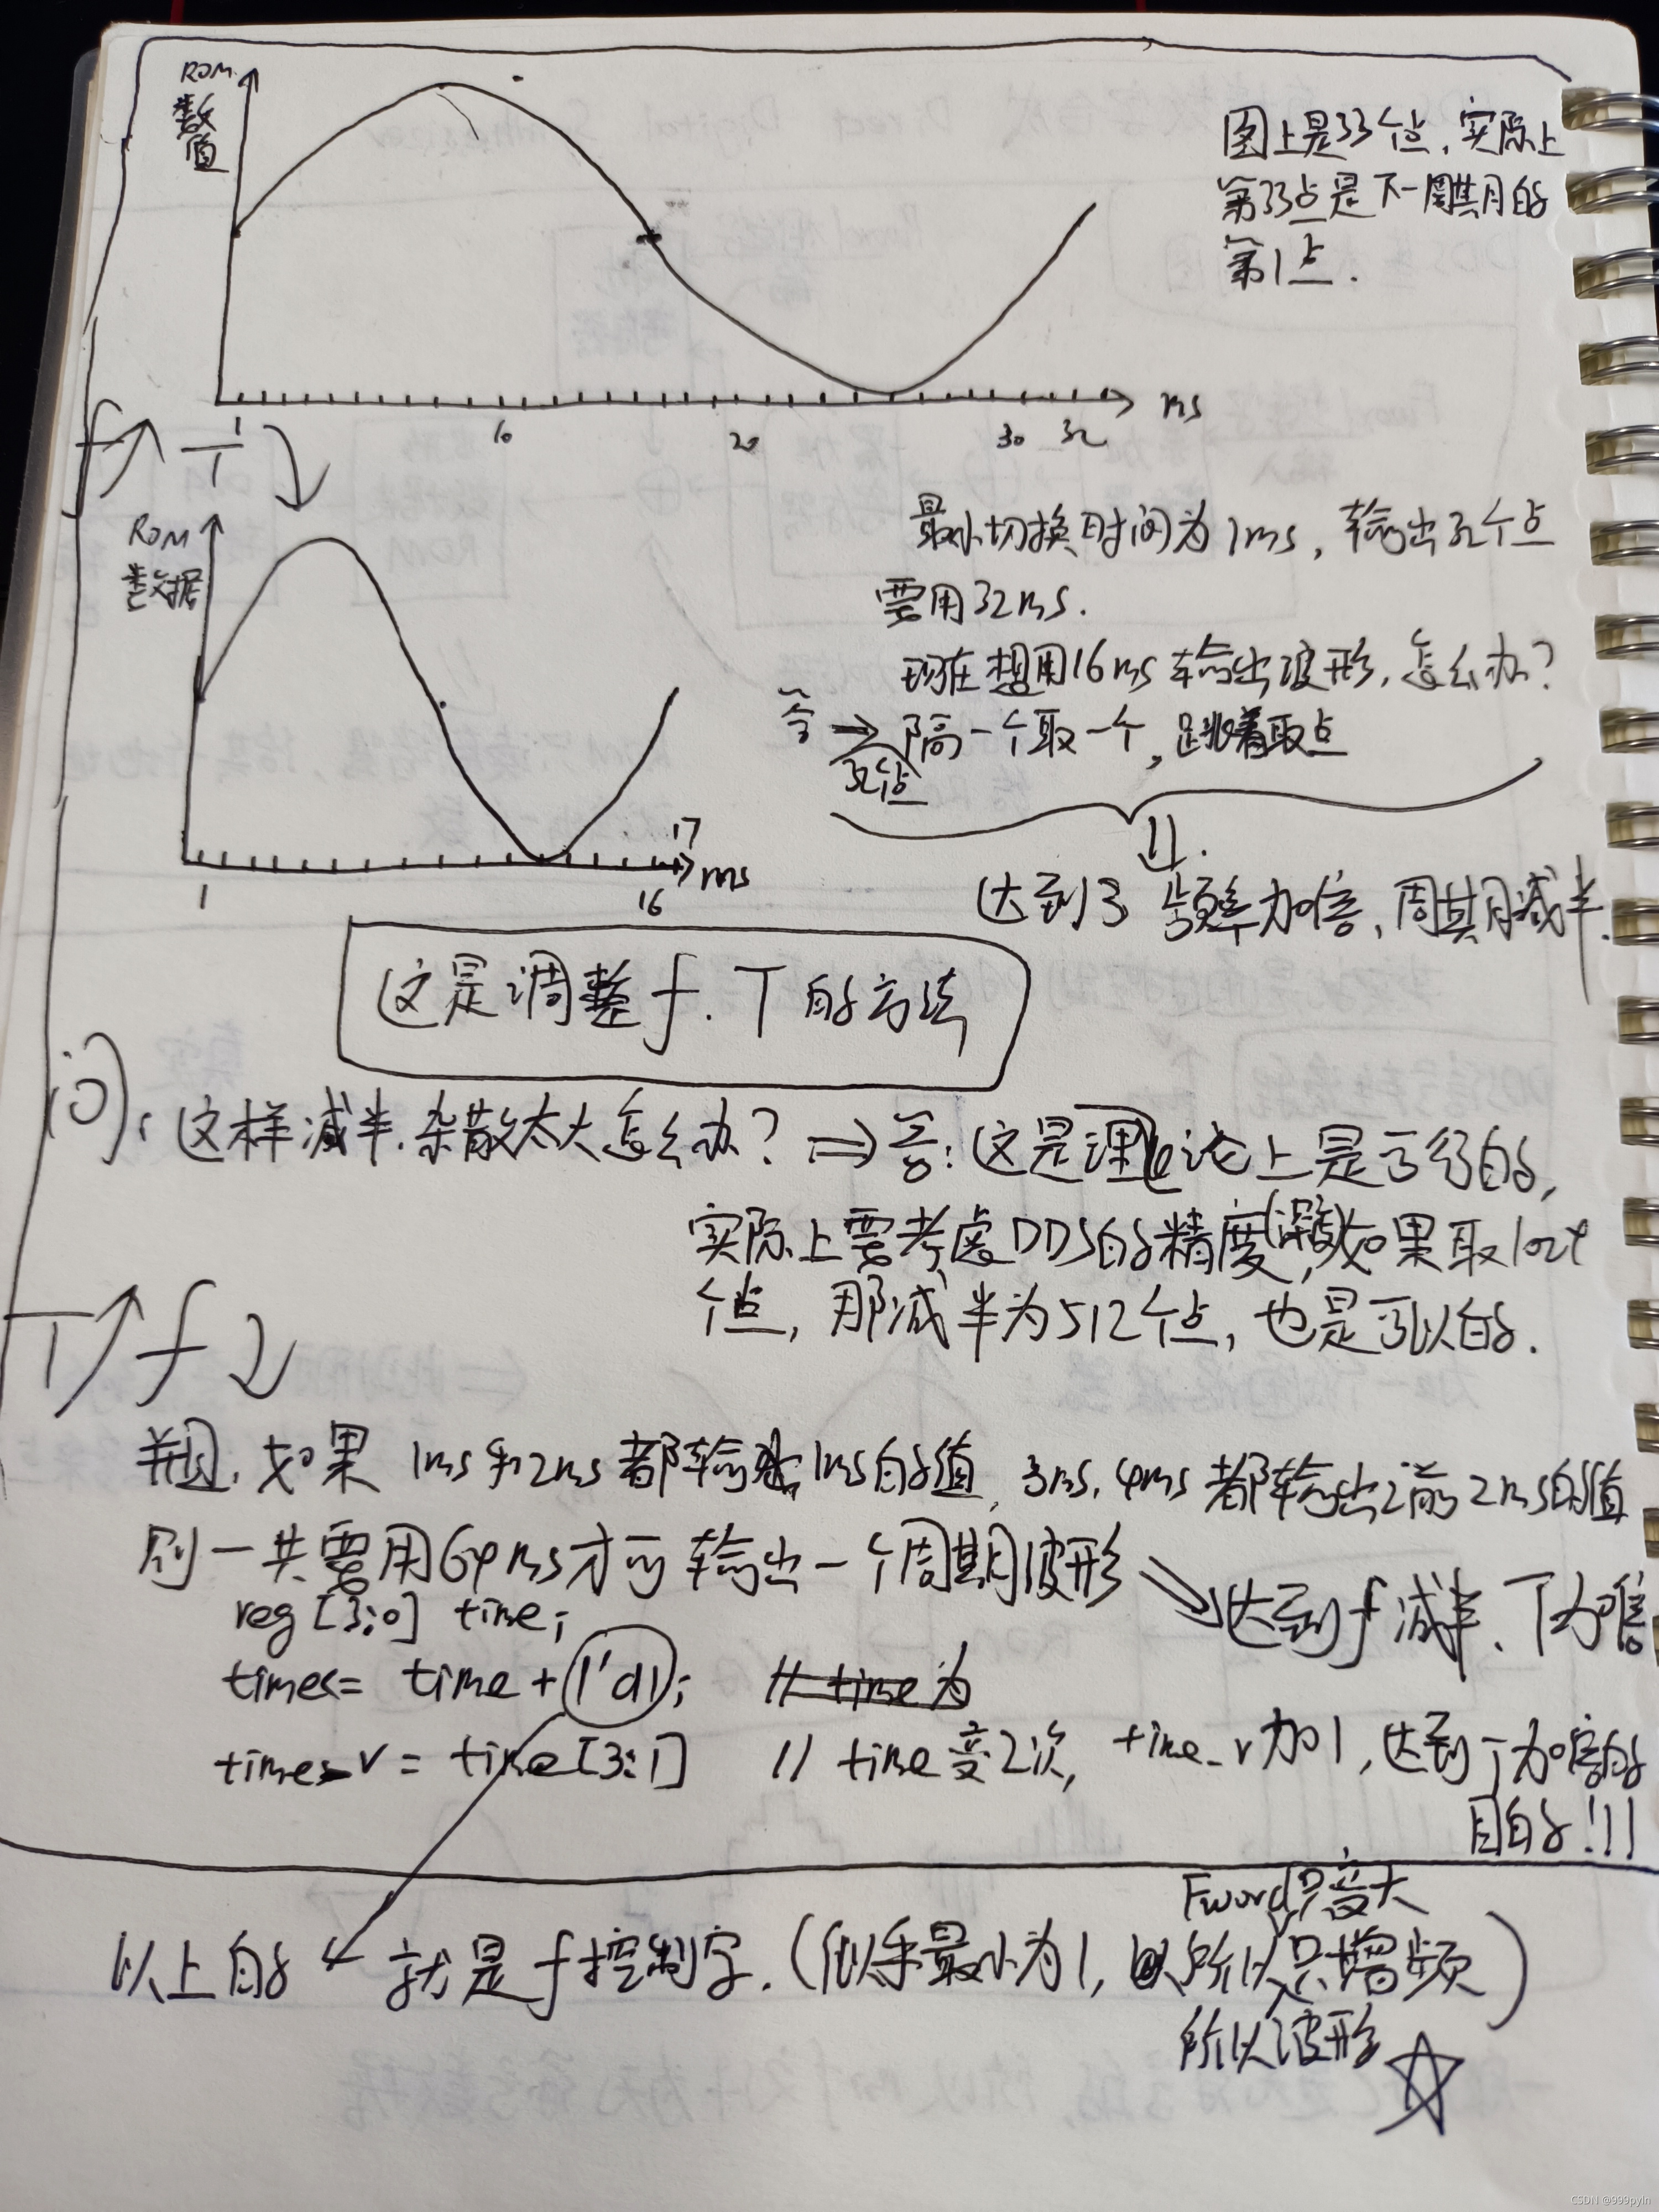 ROM
数值
图上是33个点，实际上
第33点是下一周期的
第1点.
1 10 20 30 32 ms
f↗ T↘
ROM
数据
最小切换时间为1ms，输出32个点
要用32ms.
现在想用16ms输出波形，怎么办？
答 → 隔一个取一个，跳着取点
32点
⇓
达到了频率加倍，周期减半.
1 16 17 ms
这是调整f.T的方法
问：这样减半，杂散太大怎么办？⇒答：这是理论上是可行的，
实际上要考虑DDS的精度(深度)，如果取1024
个点，那减半为512个点，也是可以的.
T↗ f↘
并且，如果 1ms和2ms都输出1ms的值，3ms，4ms都输出之前2ms的值
则一共要用64ms才可输出一个周期波形 ⇒达到f减半、T加倍
reg [3:0] time;
time<= time + 1'd1; // time为
time_v = time[3:1] // time变2次，time_v加1，达到T加倍的
目的!!!
Fword只变大
以上的 ↙ 就是f控制字.（似乎最小为1，所以只增频）
所以波形 ☆
CSDN @999pyln